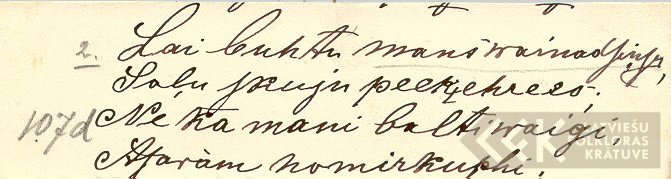 2. Lai buhtu mans wainadsiņsch,
Salu skuju peekęhrees;
107d Ne ka mani balti waigi,
Asaràm nomirkuschi.
LATVIEŠU
FOLKLORAS
KRĀTUVE